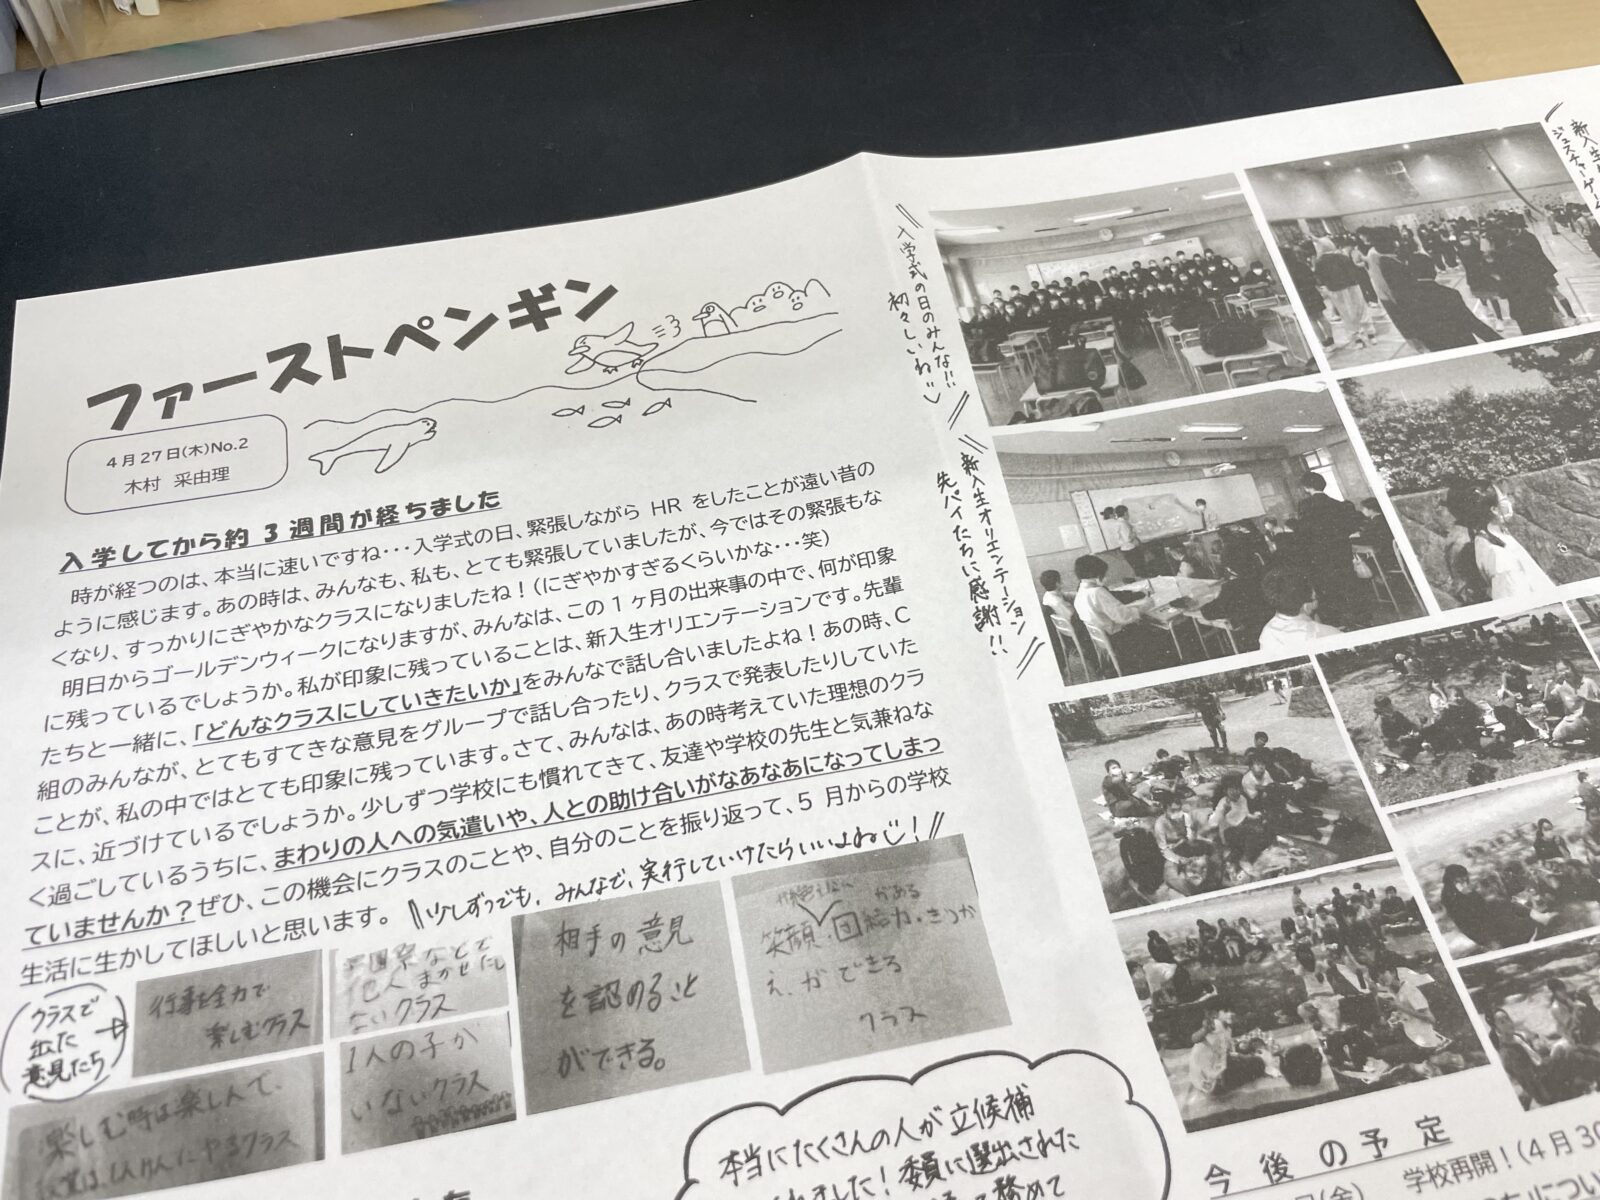 ファーストペンギン
4月27日(木)No.2
木村 采由理
入学してから約3週間が経ちました
時が経つのは、本当に速いですね・・・入学式の日、緊張しながら HR をしたことが遠い昔の
ように感じます。あの時は、みんなも、私も、とても緊張していましたが、今ではその緊張もな
くなり、すっかりにぎやかなクラスになりましたね！(にぎやかすぎるくらいかな・・・笑)
明日からゴールデンウィークになりますが、みんなは、この1ヶ月の出来事の中で、何が印象
に残っているでしょうか。私が印象に残っていることは、新入生オリエンテーションです。先輩
たちと一緒に、「どんなクラスにしていきたいか」をみんなで話し合いましたよね！あの時、C
組のみんなが、とてもすてきな意見をグループで話し合ったり、クラスで発表したりしていた
ことが、私の中ではとても印象に残っています。さて、みんなは、あの時考えていた理想のクラ
スに、近づけているでしょうか。少しずつ学校にも慣れてきて、友達や学校の先生と気兼ねな
く過ごしているうちに、まわりの人への気遣いや、人との助け合いがなあなあになってしまっ
ていませんか？ぜひ、この機会にクラスのことや、自分のことを振り返って、5月からの学校
生活に生かしてほしいと思います。
少しずつでも、みんなで、実行していけたらいいよね！
クラスで
出た
意見たち
行事を全力で
楽しむクラス
他人まかせにし
ないクラス
1人の子が
いないクラス
楽しむ時は楽しんで、
やるクラス
相手の意見
を認めること
ができる。
笑顔・団結力
がある
ができる
クラス
本当にたくさんの人が立候補
ました！委員に選出された
務めて
入学式の日のみんな!!
初々しいね
新入生オリエンテーション
先パイたちに感謝!!
新入生
ジェスチャーゲーム
今後の予定
(金) 学校再開！(4月30